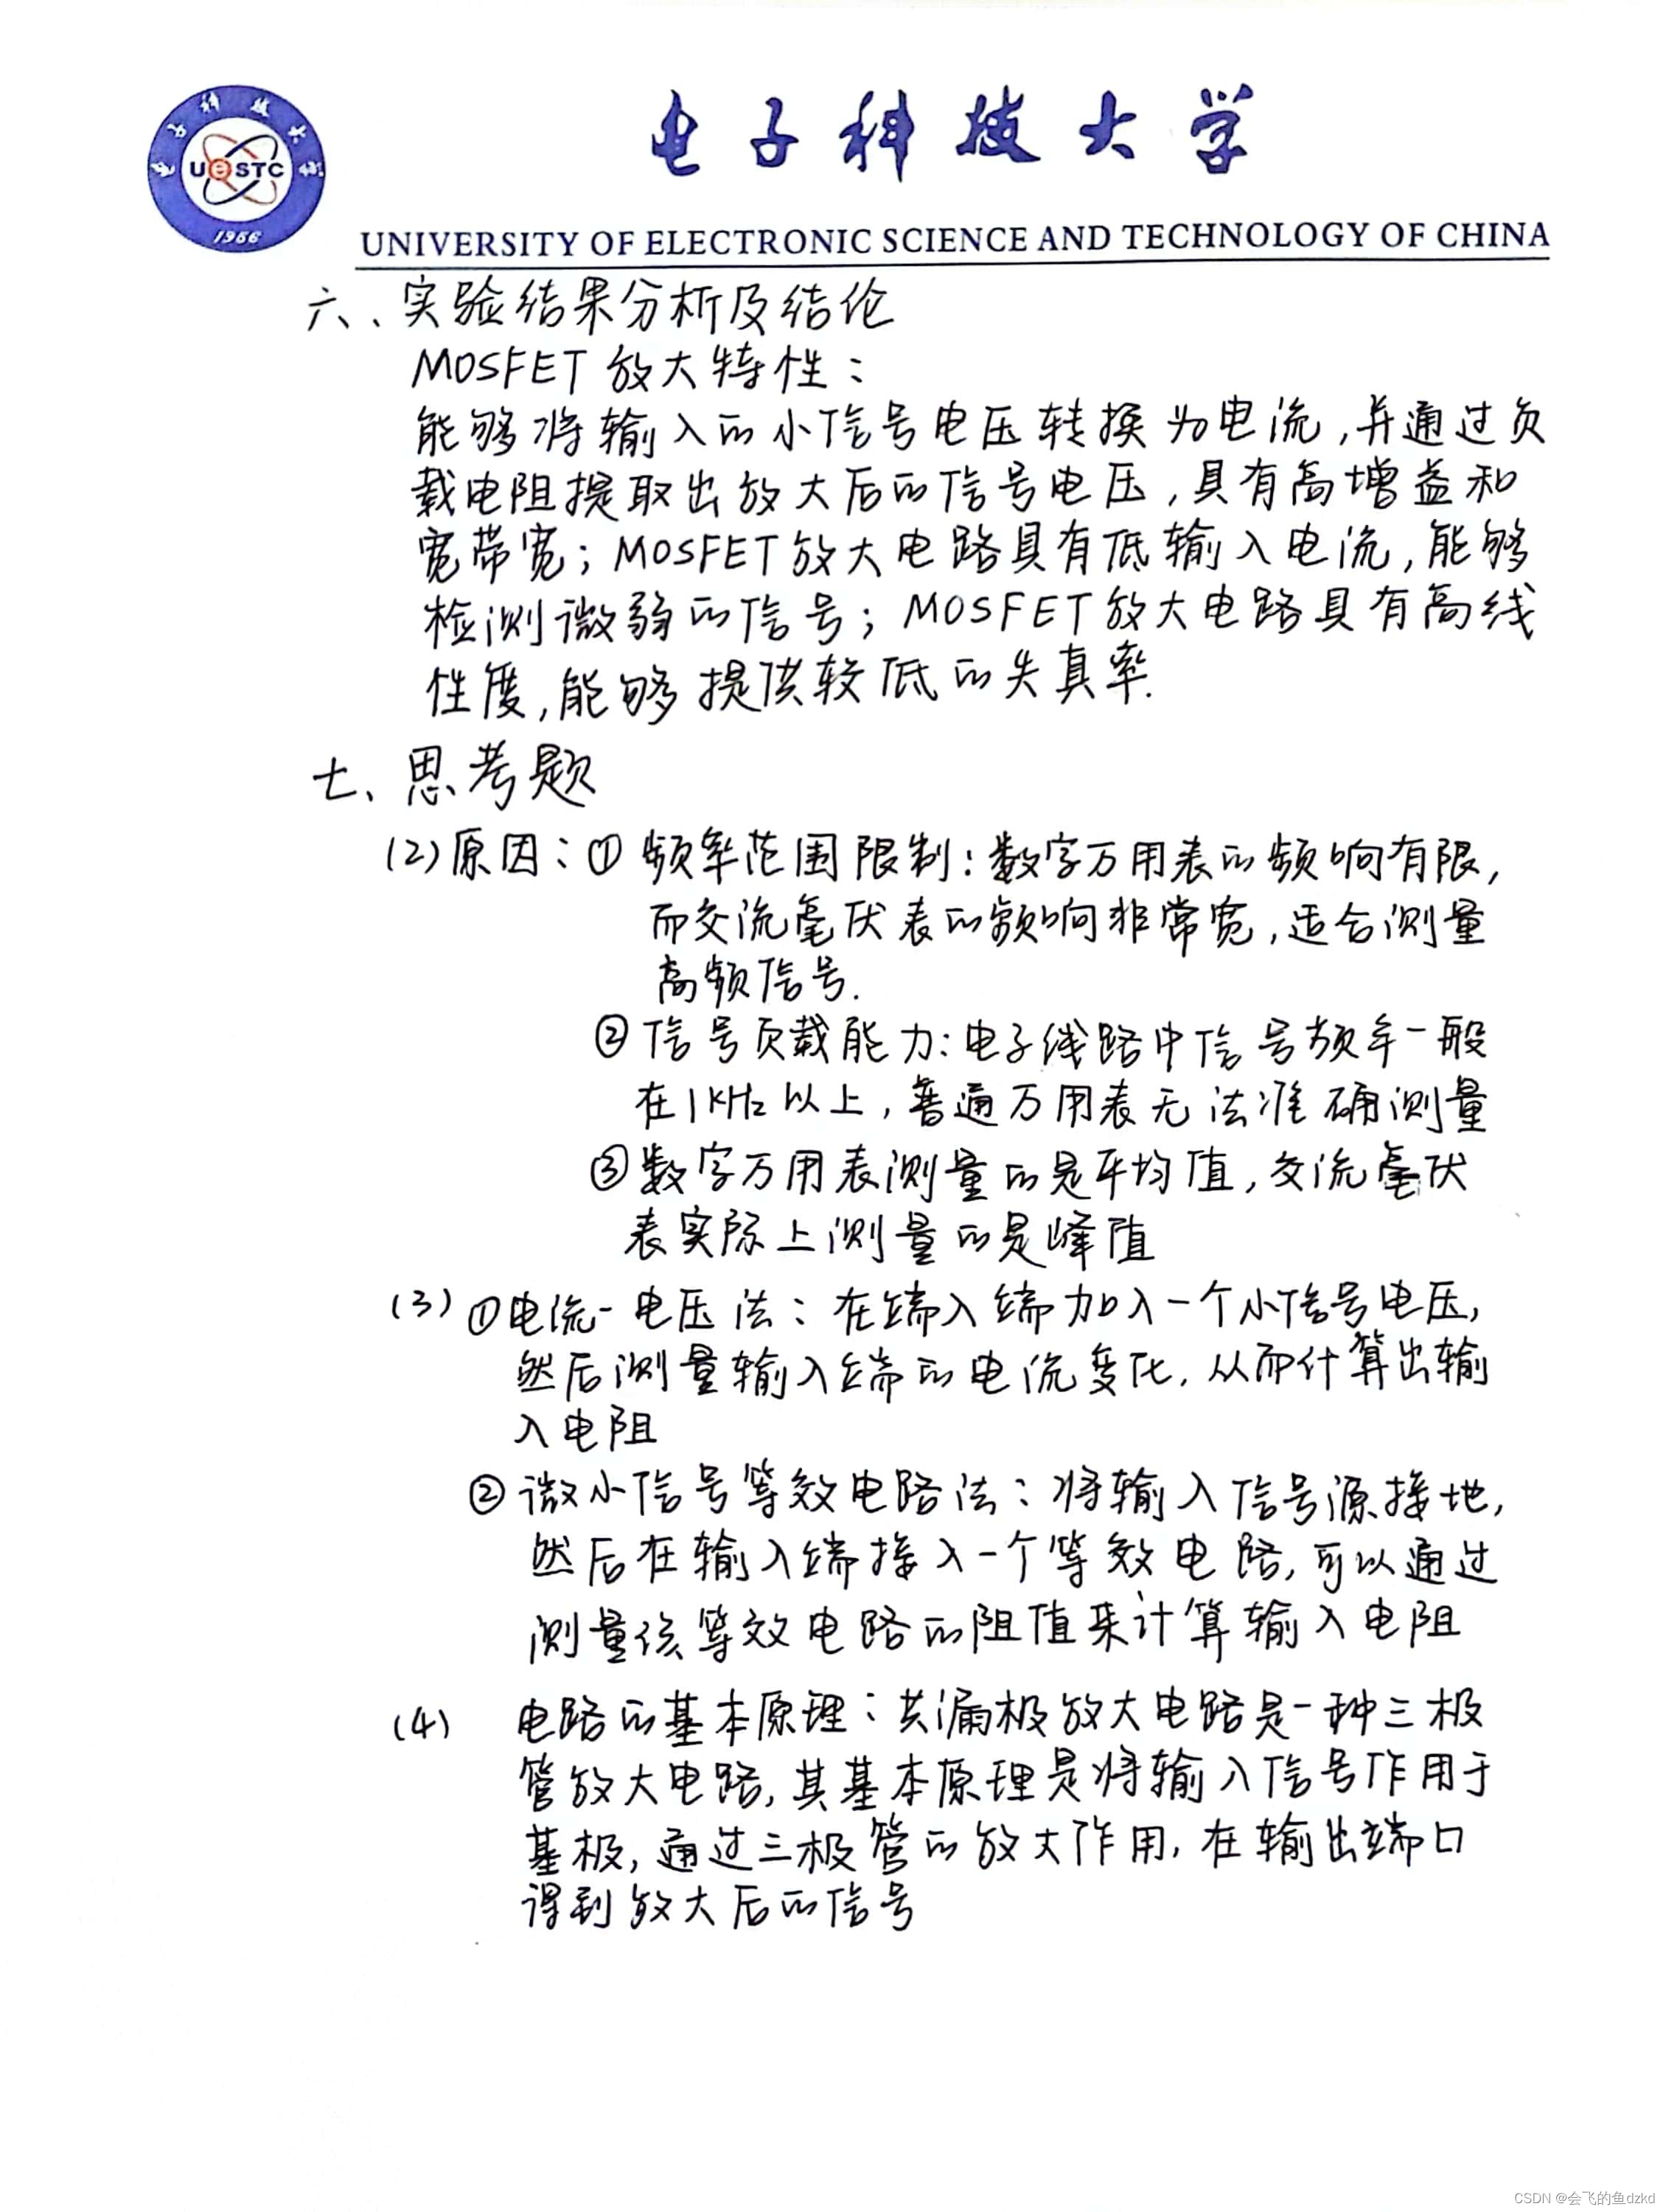 电子科技大学
UESTC
1956
UNIVERSITY OF ELECTRONIC SCIENCE AND TECHNOLOGY OF CHINA
六、实验结果分析及结论
MOSFET 放大特性：
能够将输入的小信号电压转换为电流,并通过负
载电阻提取出放大后的信号电压,具有高增益和
宽带宽；MOSFET放大电路具有低输入电流,能够
检测微弱的信号；MOSFET放大电路具有高线
性度,能够提供较低的失真率.
七、思考题
(2)原因：① 频率范围限制：数字万用表的频响有限,
而交流毫伏表的频响非常宽,适合测量
高频信号.
②信号负载能力：电子线路中信号频率一般
在1KHz以上,普通万用表无法准确测量
③数字万用表测量的是平均值,交流毫伏
表实际上测量的是峰值
(3) ①电流-电压法：在端入端加入一个小信号电压,
然后测量输入端的电流变化,从而计算出输
入电阻
②微小信号等效电路法：将输入信号源接地,
然后在输入端接入一个等效电路,可以通过
测量该等效电路的阻值来计算输入电阻
(4) 电路的基本原理：共漏极放大电路是一种三极
管放大电路,其基本原理是将输入信号作用于
基极,通过三极管的放大作用,在输出端口
得到放大后的信号
CSDN @会飞的鱼dzkd